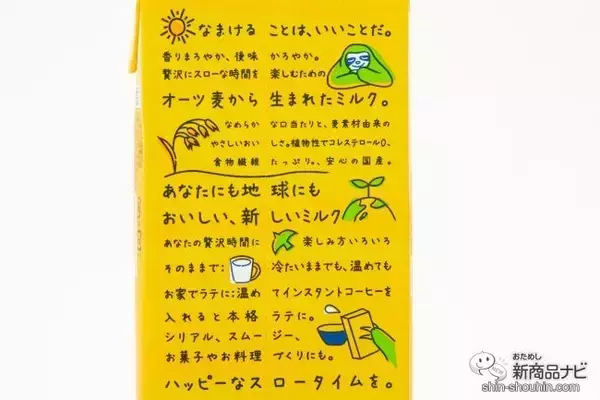 なまける ことは、いいことだ。
香りまろやか、後味 かろやか。
贅沢にスローな時間を 楽しむための
オーツ麦から 生まれたミルク。
なめらか な口当たりと、麦素材由来の
やさしいおい しさ。植物性でコレステロール0、
食物繊維 たっぷり。、安心の国産。
あなたにも地 球にも
おいしい、新 しいミルク
あなたの贅沢時間に 楽しみ方いろいろ
そのままで: 冷たいままでも、温めても
お家でラテに:温め てインスタントコーヒーを
入れると本格 ラテに。
シリアル、スムー ジー、
お菓子やお料理 づくりにも。
ハッピーなス ロータイムを。
おためし
新商品ナビ
shin-shouhin.com